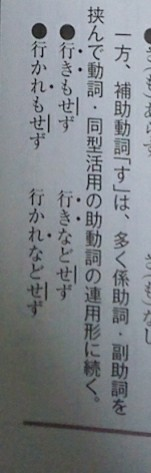 一方、補助動詞「す」は、多く係助詞・副助詞を
挟んで動詞・同型活用の助動詞の連用形に続く。
●行きもせず　行きなどせず
●行かれもせず　行かれなどせず